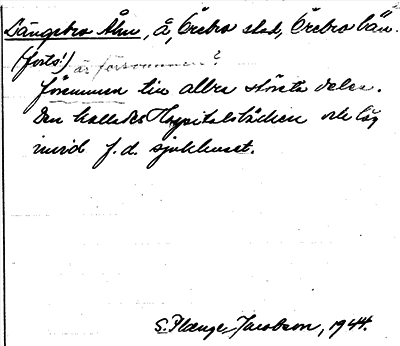 Längebro Åm, å, Örebro stad, Örebro län.
(forts!) är försvunnen?
försvunnen till allra största delen.
Den kallades Hospitalsbäcken och låg
invid f.d. sjukhuset.
S. Plænge Jacobson, 1944.